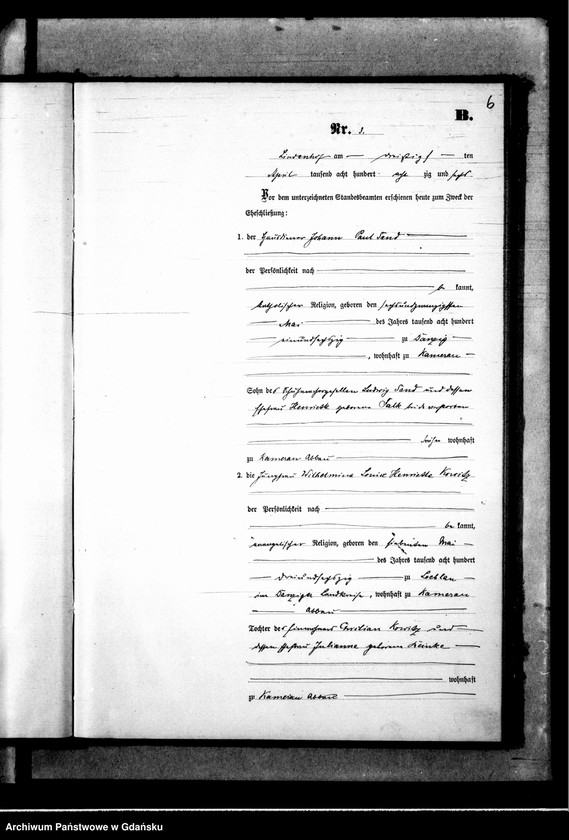 6
B.
Nr. 3.
Lindenhof am dreißigs ten
April tausend acht hundert acht zig und sechs
Vor dem unterzeichneten Standesbeamten erschienen heute zum Zweck der
Eheschließung:
1. der Hausdiener Johann Paul Sand
der Persönlichkeit nach
be kannt,
katholischer Religion, geboren den sechsundzwanzigsten
Mai des Jahres tausend acht hundert
einundsechszig zu Danzig
, wohnhaft zu Kameran
Sohn des Schuhmachergesellen Ludwig Sand und dessen
Ehefrau Henriette geborene Salk beide verstorben
früher wohnhaft
zu Kameran Abbau
2. die Jungfrau Wilhelmine Louise Henriette Kowitz
der Persönlichkeit nach
be kannt,
evangelischer Religion, geboren den siebenten Mai
des Jahres tausend acht hundert
dreiundsechszig zu Loeblau
im Danziger Landkreise, wohnhaft zu Kameran
Abbau
Tochter des Einwohners Christian Kowitz und
dessen Ehefrau Julianne geborene Reinke
wohnhaft
zu Kameran Abbau
Archiwum Państwowe w Gdańsku